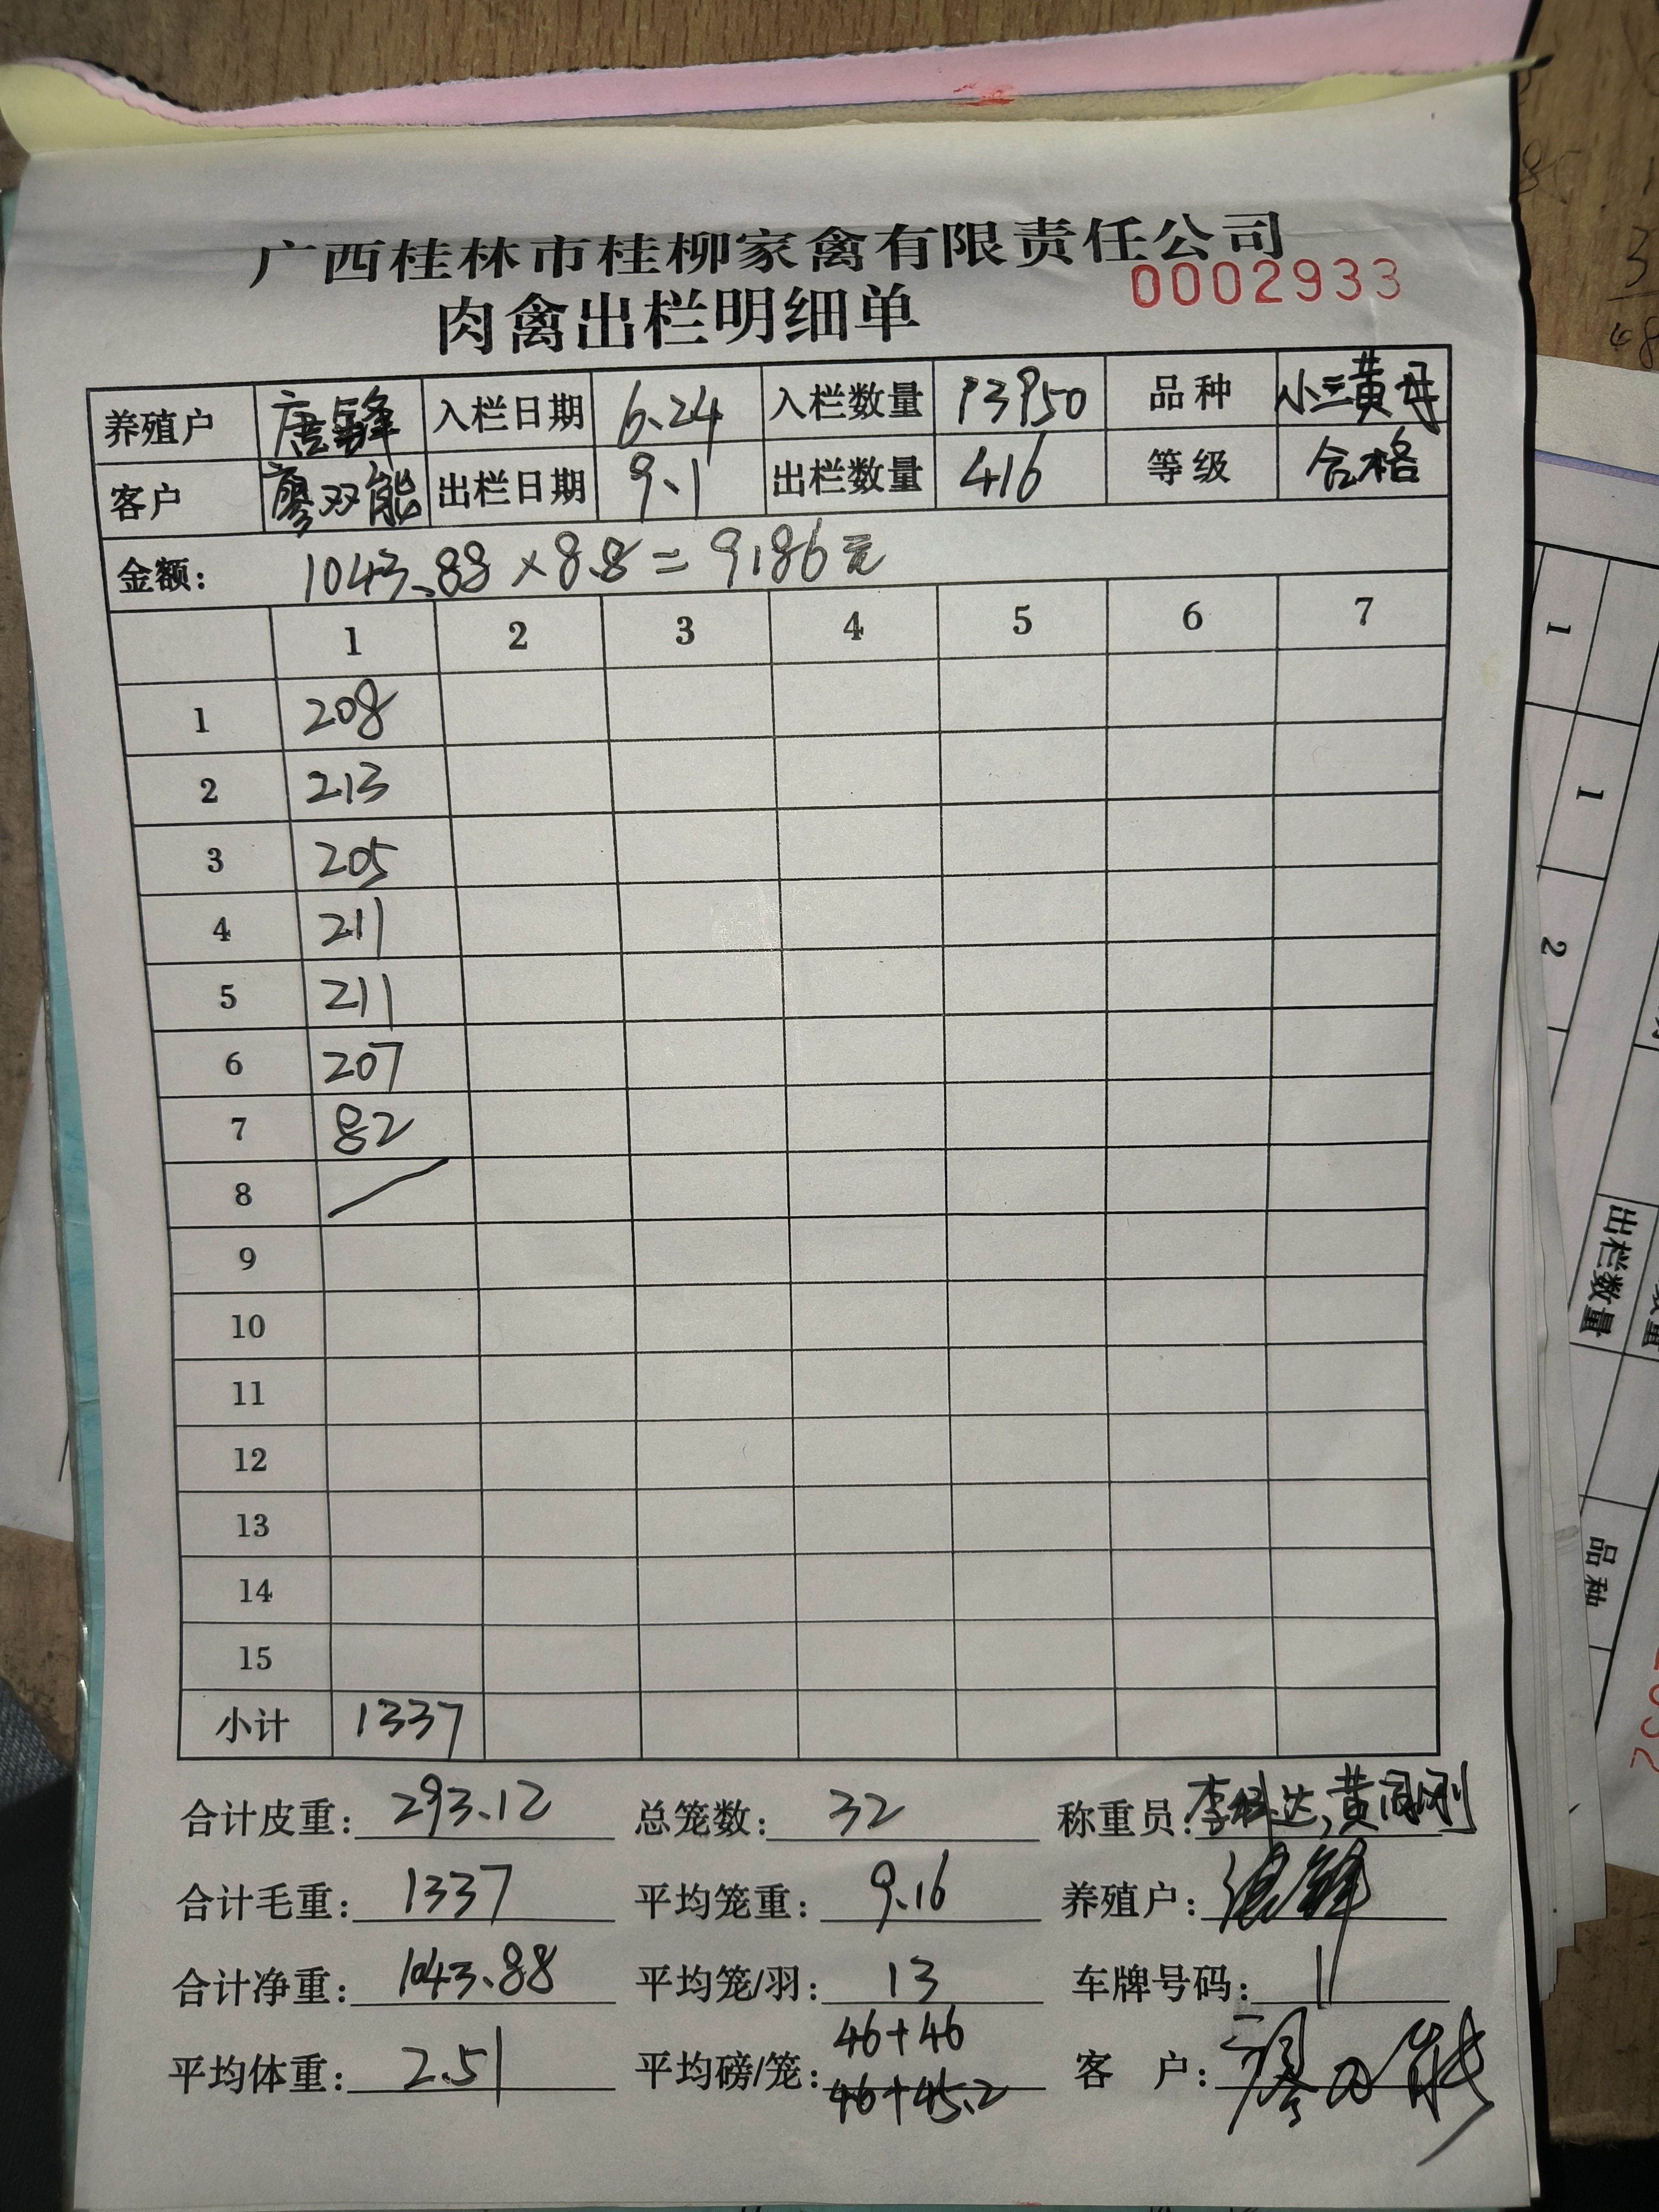 广西桂林市桂柳家禽有限责任公司
0002933
肉禽出栏明细单
养殖户 唐锋 入栏日期 6.24 入栏数量 13950 品种 小三黄母
客户 廖双能 出栏日期 9.1 出栏数量 416 等级 合格
金额: 1043.88×8.8=9186元
1 2 3 4 5 6 7
1 208
2 213
3 205
4 211
5 211
6 207
7 82
8
9
10
11
12
13
14
15
小计 1337
合计皮重: 293.12 总笼数: 32 称重员: 李 达,黄 刚
合计毛重: 1337 平均笼重: 9.16 养殖户:
合计净重: 1043.88 平均笼/羽: 13 车牌号码:
平均体重: 2.51 平均磅/笼: 46+46 客 户: 廖双能
46+45.2
1
1
2
出栏数量
品种